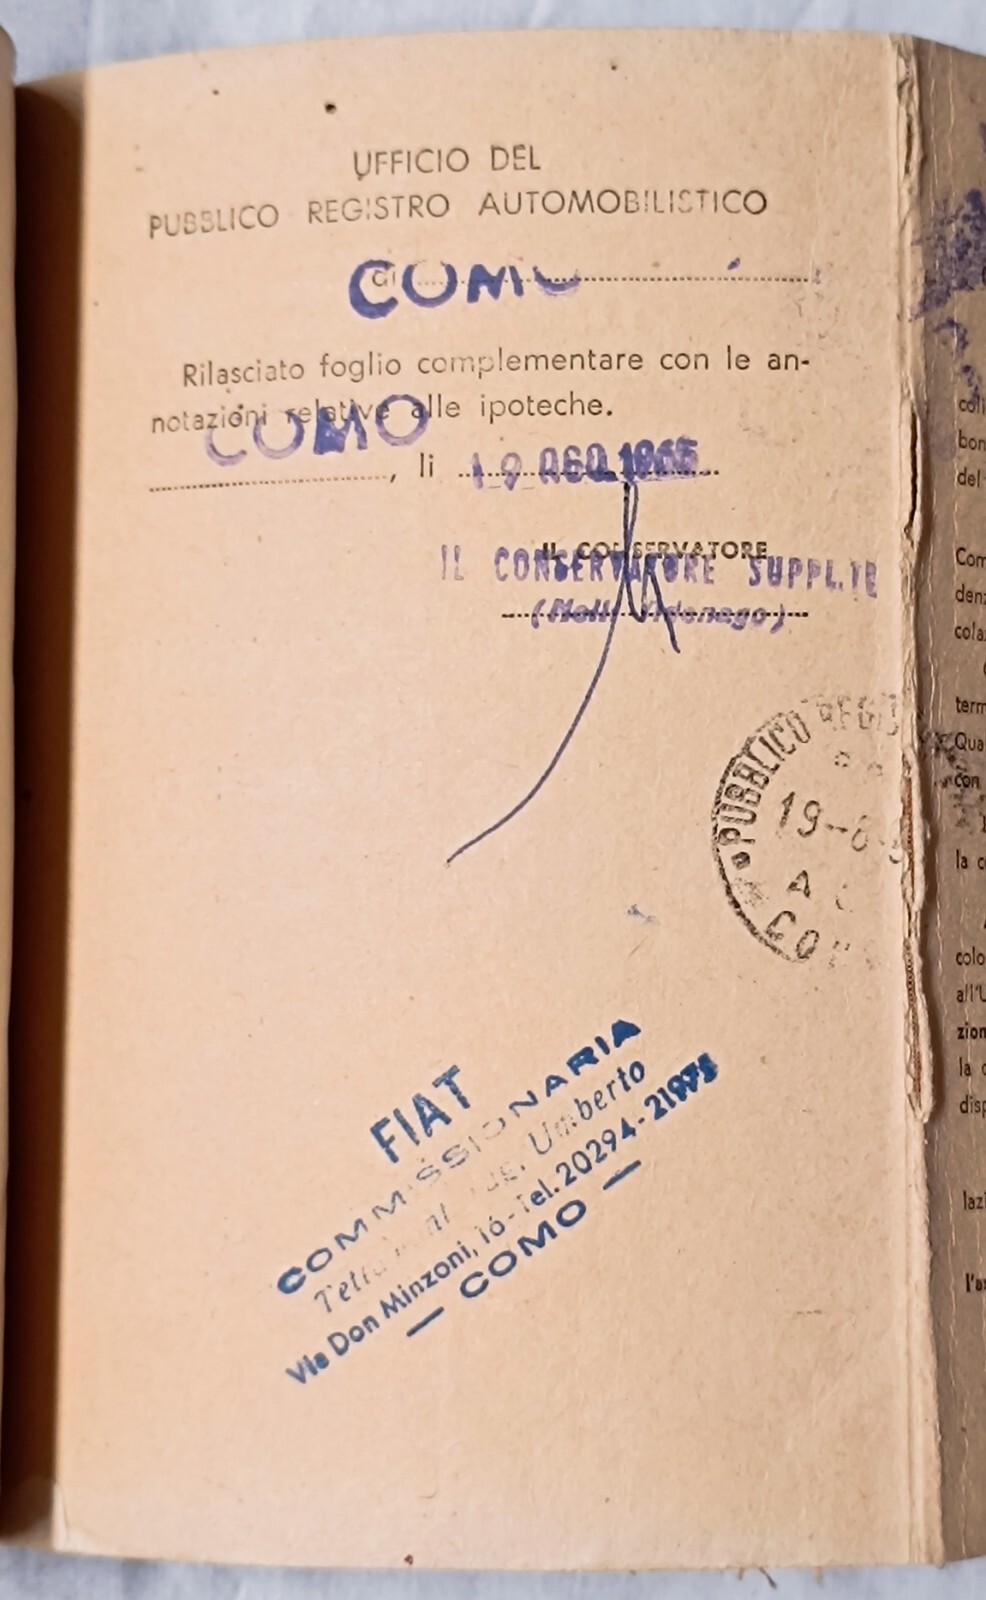 UFFICIO DEL
PUBBLICO REGISTRO AUTOMOBILISTICO
di COMO
Rilasciato foglio complementare con le an-
notazioni relative alle ipoteche.
COMO, li 19 AGO. 1965
IL CONSERVATORE
IL CONSERVATORE SUPPL.TE
PUBBLICO REGI
19-8-
A
CO
FIAT
COMMISSIONARIA
Umberto
Via Don Minzoni, 16 - Tel. 20294 - 21975
— COMO —
bon
del
Com
denz
cola
term
Qua
con
la c
colo
all'U
zion
la c
disp
lazi
l'as